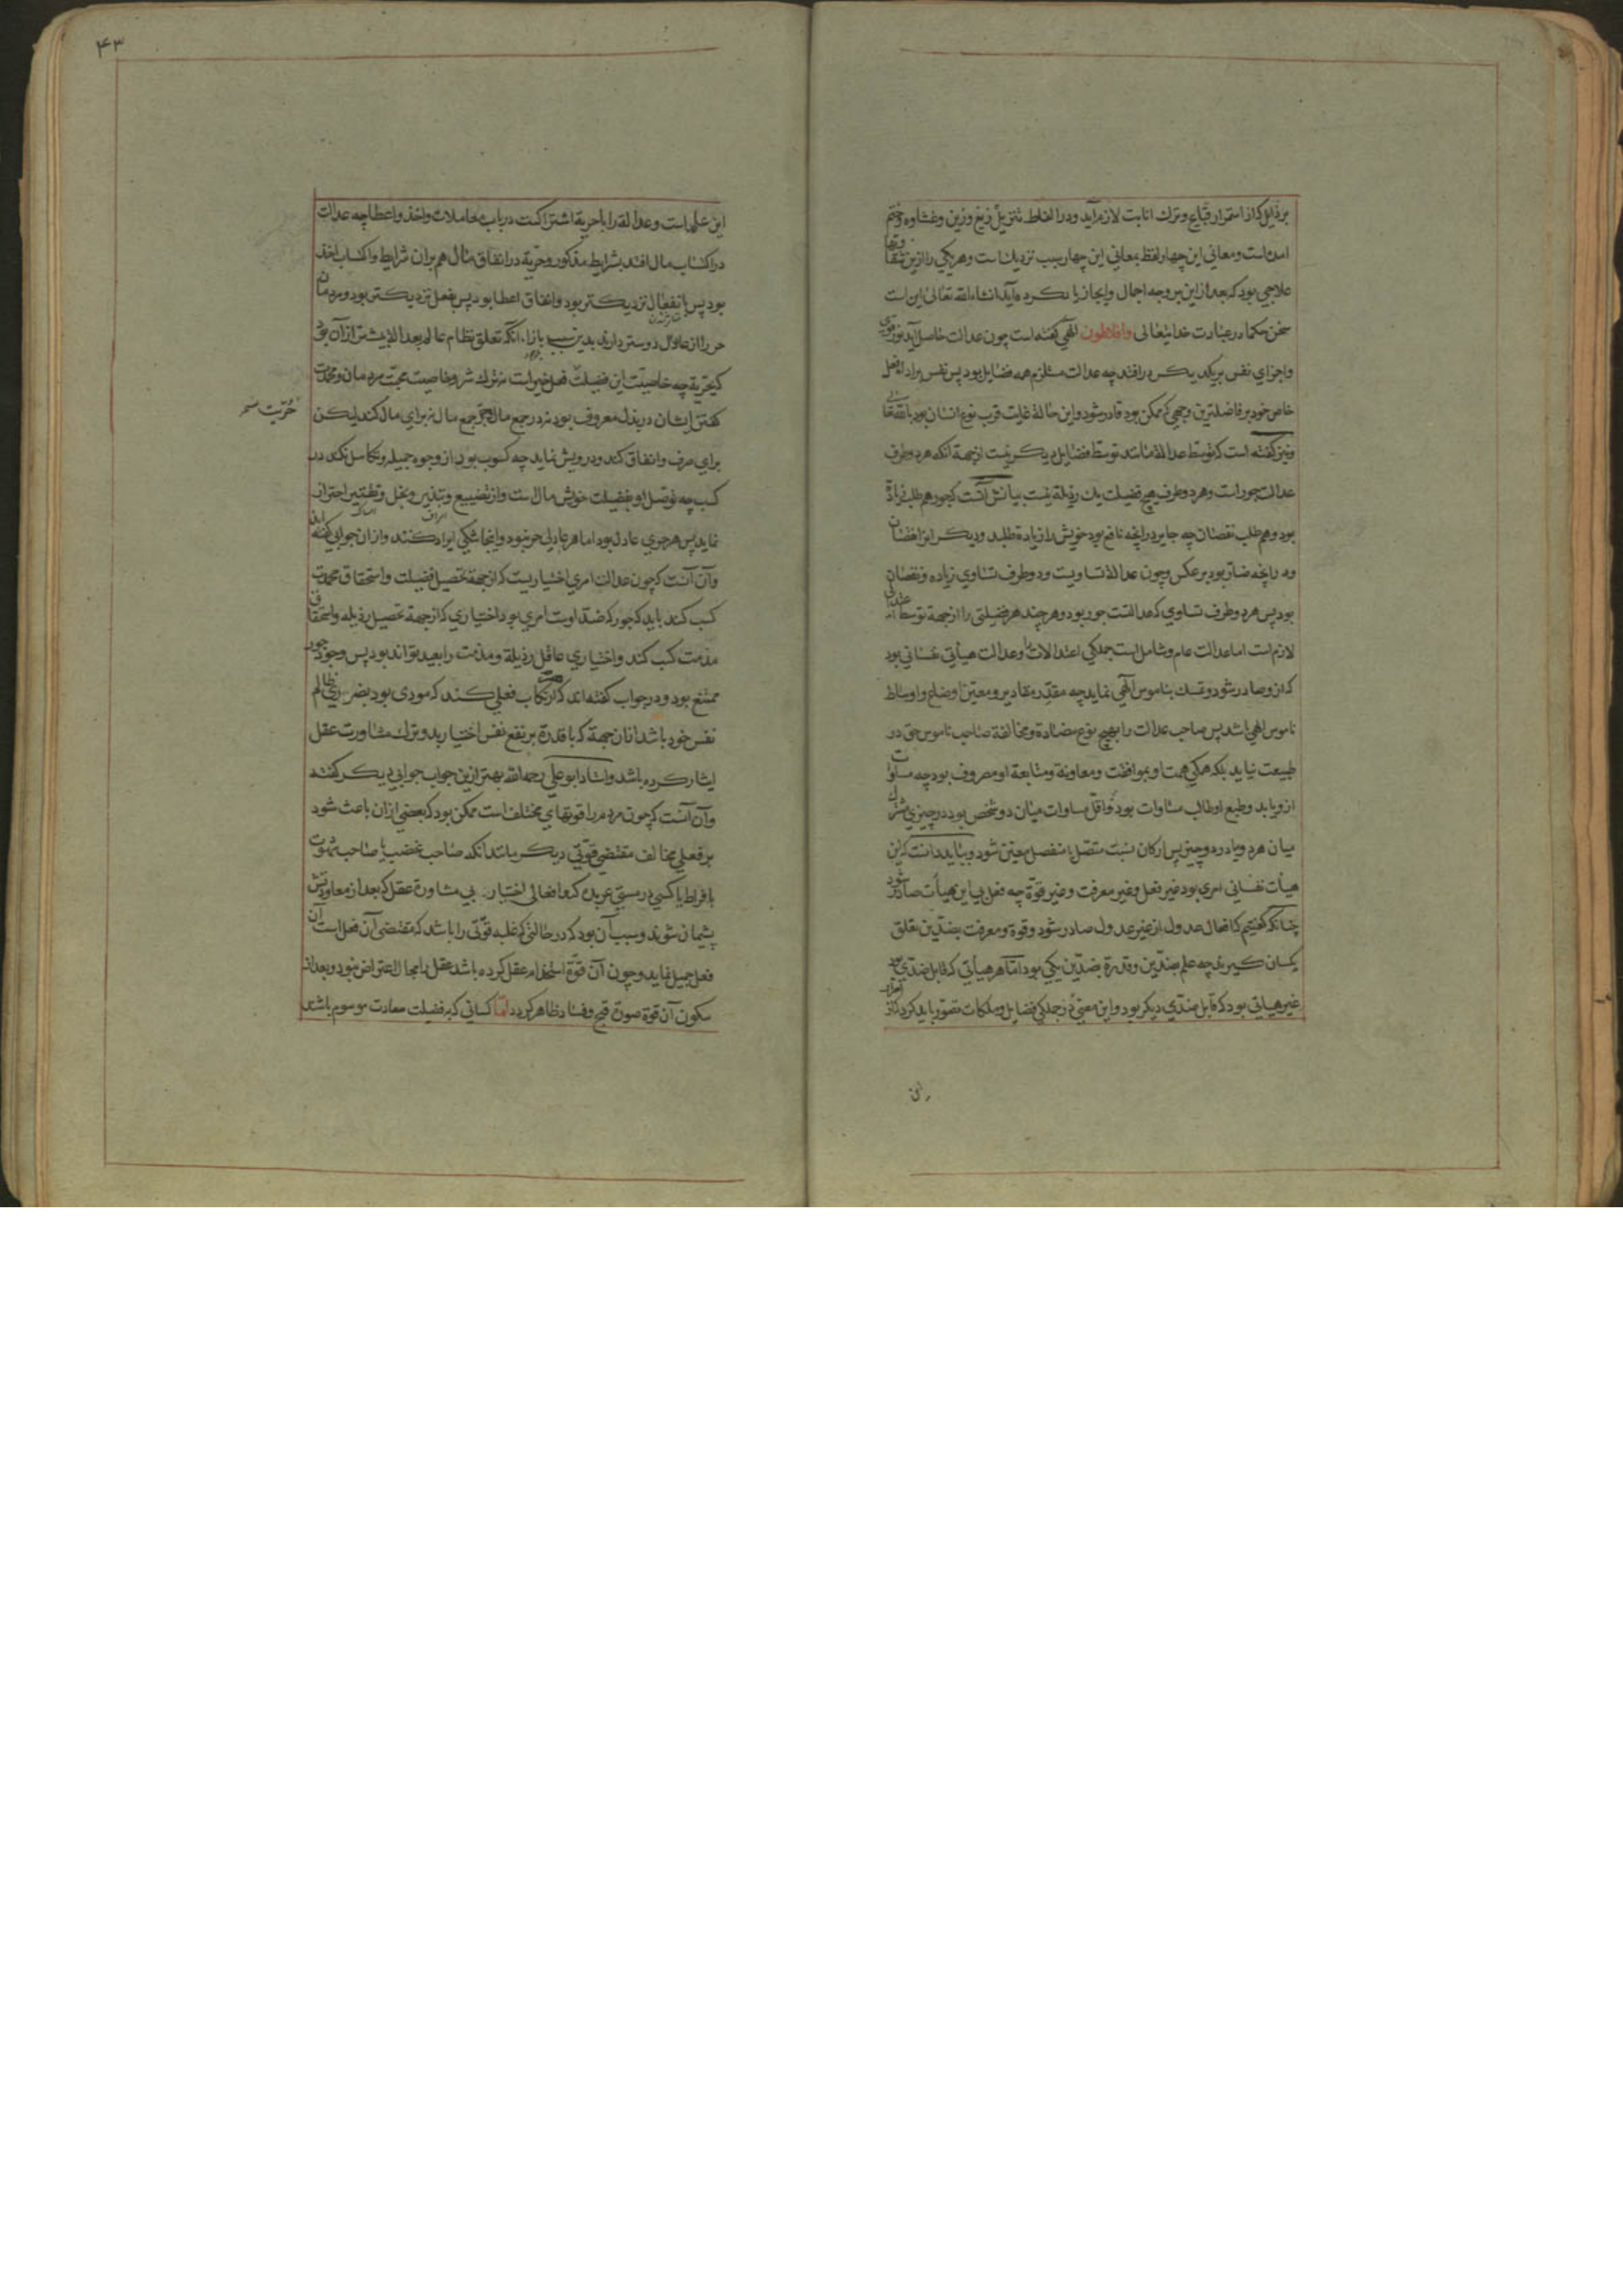 برذایل که از استمرار قبایح و ترک انابت لازم آید و در الفاظ تنزیل زیغ و رین و غشاوه و ختم
آمده است و معانی این چهار لفظ بمعانی این چهار سبب نزدیک است و هر یکی را ازین شقاوتها
علاجی بود که بعد از این بر وجه اجمال و ایجاز یاد کرده آید انشاء الله تعالی این است
سخن حکما در عبادت خدایتعالی وافلاطون الهی گفته است چون عدالت حاصل آید نور قوی
واجزای نفس بر یکدیگر درافتد چه عدالت مستلزم همه فضایل بود پس نفس بر اداء فعل
خاص خود بر فاضلترین وجهی که ممکن بود قادر شود و این حالة غایت قرب نوع انسان بود باله تعالی
ونیز گفته است که توسط عدالة مانند توسط فضایل دیگر نیست از جهة آنکه هر دو طرف
عدالت جور است و هر دو طرف هیچ فضیلت یک رذیلة نیست بیانش آنست که جور هم طلب زیادة
بود و هم طلب نقصان چه جایر در آنچه نافع بود خویش را زیادة طلبد ودیگر انرا نقصان
ودر آنچه ضار بود بر عکس وچون عدالة تساویست ودو طرف تساوی زیاده و نقصان
بود پس هر دو طرف تساوی که عدالتست جور بود و هر چند هر فضیلتی را از جهة توسط اعتدالی
لازم است اما عدالت عام و شامل است جملگی اعتدالات را وعدالت هیأتی نفسانی بود
که ازو صادر شود و تمسک بناموس الهی نماید چه مقدر مقادیر و معین اوضاع واوساط
ناموس الهی باشد پس صاحب عدالت را بهیچ نوع مضادة و مخالفة صاحب ناموس حق در
طبیعت نیاید بلکه همگی همت او بموافقت و معاونة و متابعة او مصروف بود چه مساوات
ازو یابد و طبع او طالب مساوات بود و اقل مساوات میان دو شخص بود در چیزی مشترک
میان هر دو یا در دو چیز پس ارکان نسبت متصل یا منفصل معین شود و بباید دانست که این
هیأت نفسانی امری بود غیر فعل و غیر معرفت و غیر قوة چه فعل بی این هیأت صادر شود
چنانکه گفتیم که افعال عدول از غیر عدول صادر شود و قوة و معرفت بضدین تعلق
یکسان گیرند چه علم بضدین وقدرة بضدین یکی بود اما هر هیأتی که قابل ضدی بود
غیر هیأتی بود که قابل ضدی دیگر بود و این معنی در جملگی فضایل و ملکات تصور باید کرد که از اسرار
این
۴۳
این علم است و عدالة را با حریة اشتراکست در باب معاملات واخذ و اعطا چه عدالت
در اکتساب مال افتد بشرایط مذکور و حریة در انفاق مال هم بران شرایط واکتساب اخذ
بود پس بانفعال نزدیکتر بود و انفاق اعطا بود پس بفعل نزدیکتر بود و مردمان
حر را از عادل دوستر دارند بدین سبب بازاء آنکه تعلق نظام عالم بعدالة بیشتر از آن بود
که بحریة چه خاصیت این فضیلت فعل خیر است نه ترک شر و خاصیت محبت مردمان و محمدت
گفتن ایشان در بذل معروف بود نه در جمع مال و حر جمع مال نه برای مال کند لیکن
حریت
برای صرف و انفاق کند و درویش نماید چه کسوب بود از وجوه جمیله و تکاسل نکند در
کسب چه توصل او بفضیلت خویش مال است و از تضییع و تبذیر و بخل و تقتیر احتراز
نماید پس هر حری عادل بود اما هر عادلی حر نبود واینجا شکی ایراد کنند واز ان جوابی گفته اند
وآن آنست که چون عدالت امری اختیاریست که از جهة تحصیل فضیلت و استحقاق محمدت
کسب کند باید که جور که ضد اوست امری بود اختیاری که از جهة تحصیل رذیله واستحقاق
مذمت کسب کند و اختیاری عاقل رذیلة و مذمت را بعید تواند بود پس وجود جور
ممتنع بود و در جواب گفته اند که هر که ارتکاب فعلی کند که مودی بود بضرر یعنی ظالم
نفس خود باشد از ان جهة که با قدرة بر نفع نفس اختیار بد و ترک مشاورت عقل
ایثار کرده باشد و استاد ابو علی رحمه الله بهتر ازین جواب جوابی دیگر گفته
وآن آنست که چون مردم را قوتهای مختلف است ممکن بود که بعضی از ان باعث شود
بر فعلی مخالف مقتضی قوتی دیگر مانند آنکه صاحب غضب یا صاحب شهوت
بافراط یا کسی در مستی عربده کند افعالی اختیار بی مشاورة عقل که بعد از معاودتش
پشیمان شوند و سبب آن بود که در حالتی که غلبه قوتی را باشد که مقتضی آن فعل است آن
فعل جمیل نماید و چون آن قوة استخدام عقل کرده باشد عقل را مجال اعتراض نبود و بعد از
سکون آن قوة صورة قبح و فساد ظاهر گردد اما کسانی که بفضیلت سعادت موسوم باشند